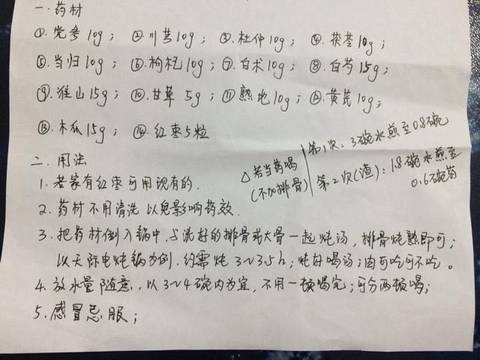 一.药材
①.党参10g; ②.川芎10g; ③.杜仲10g; ④.茯苓10g;
⑤.当归10g; ⑥.枸杞10g; ⑦.白术10g; ⑧.白芍15g;
⑨.淮山15g; ⑩.甘草5g; ⑪.熟地10g; ⑫.黄芪10g;
⑬.木瓜15g; ⑭.红枣5粒
二.用法
△若当药喝(不加排骨)
第1次:3碗水煎至0.8碗
第2次(渣):1.8碗水煎至0.6碗药
1.若家有红枣可用现有的.
2.药材不用清洗以免影响药效.
3.把药材倒入锅中,与洗好的排骨或大骨一起炖汤,排骨炖熟即可;
以天际电炖锅为例,约需炖3~3.5h;炖好喝汤;肉可吃可不吃。
4.放水量随意,以3~4碗内为宜,不用一顿喝完;可分两顿喝;
5.感冒忌服;